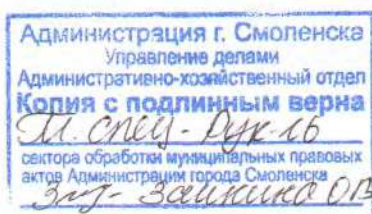 Администрация г. Смоленска
Управление делами
Административно-хозяйственный отдел
Копия с подлинным верна
Гл. спец - рук-ль
сектора обработки муниципальных правовых
актов Администрации города Смоленска
Зайкина О.В.